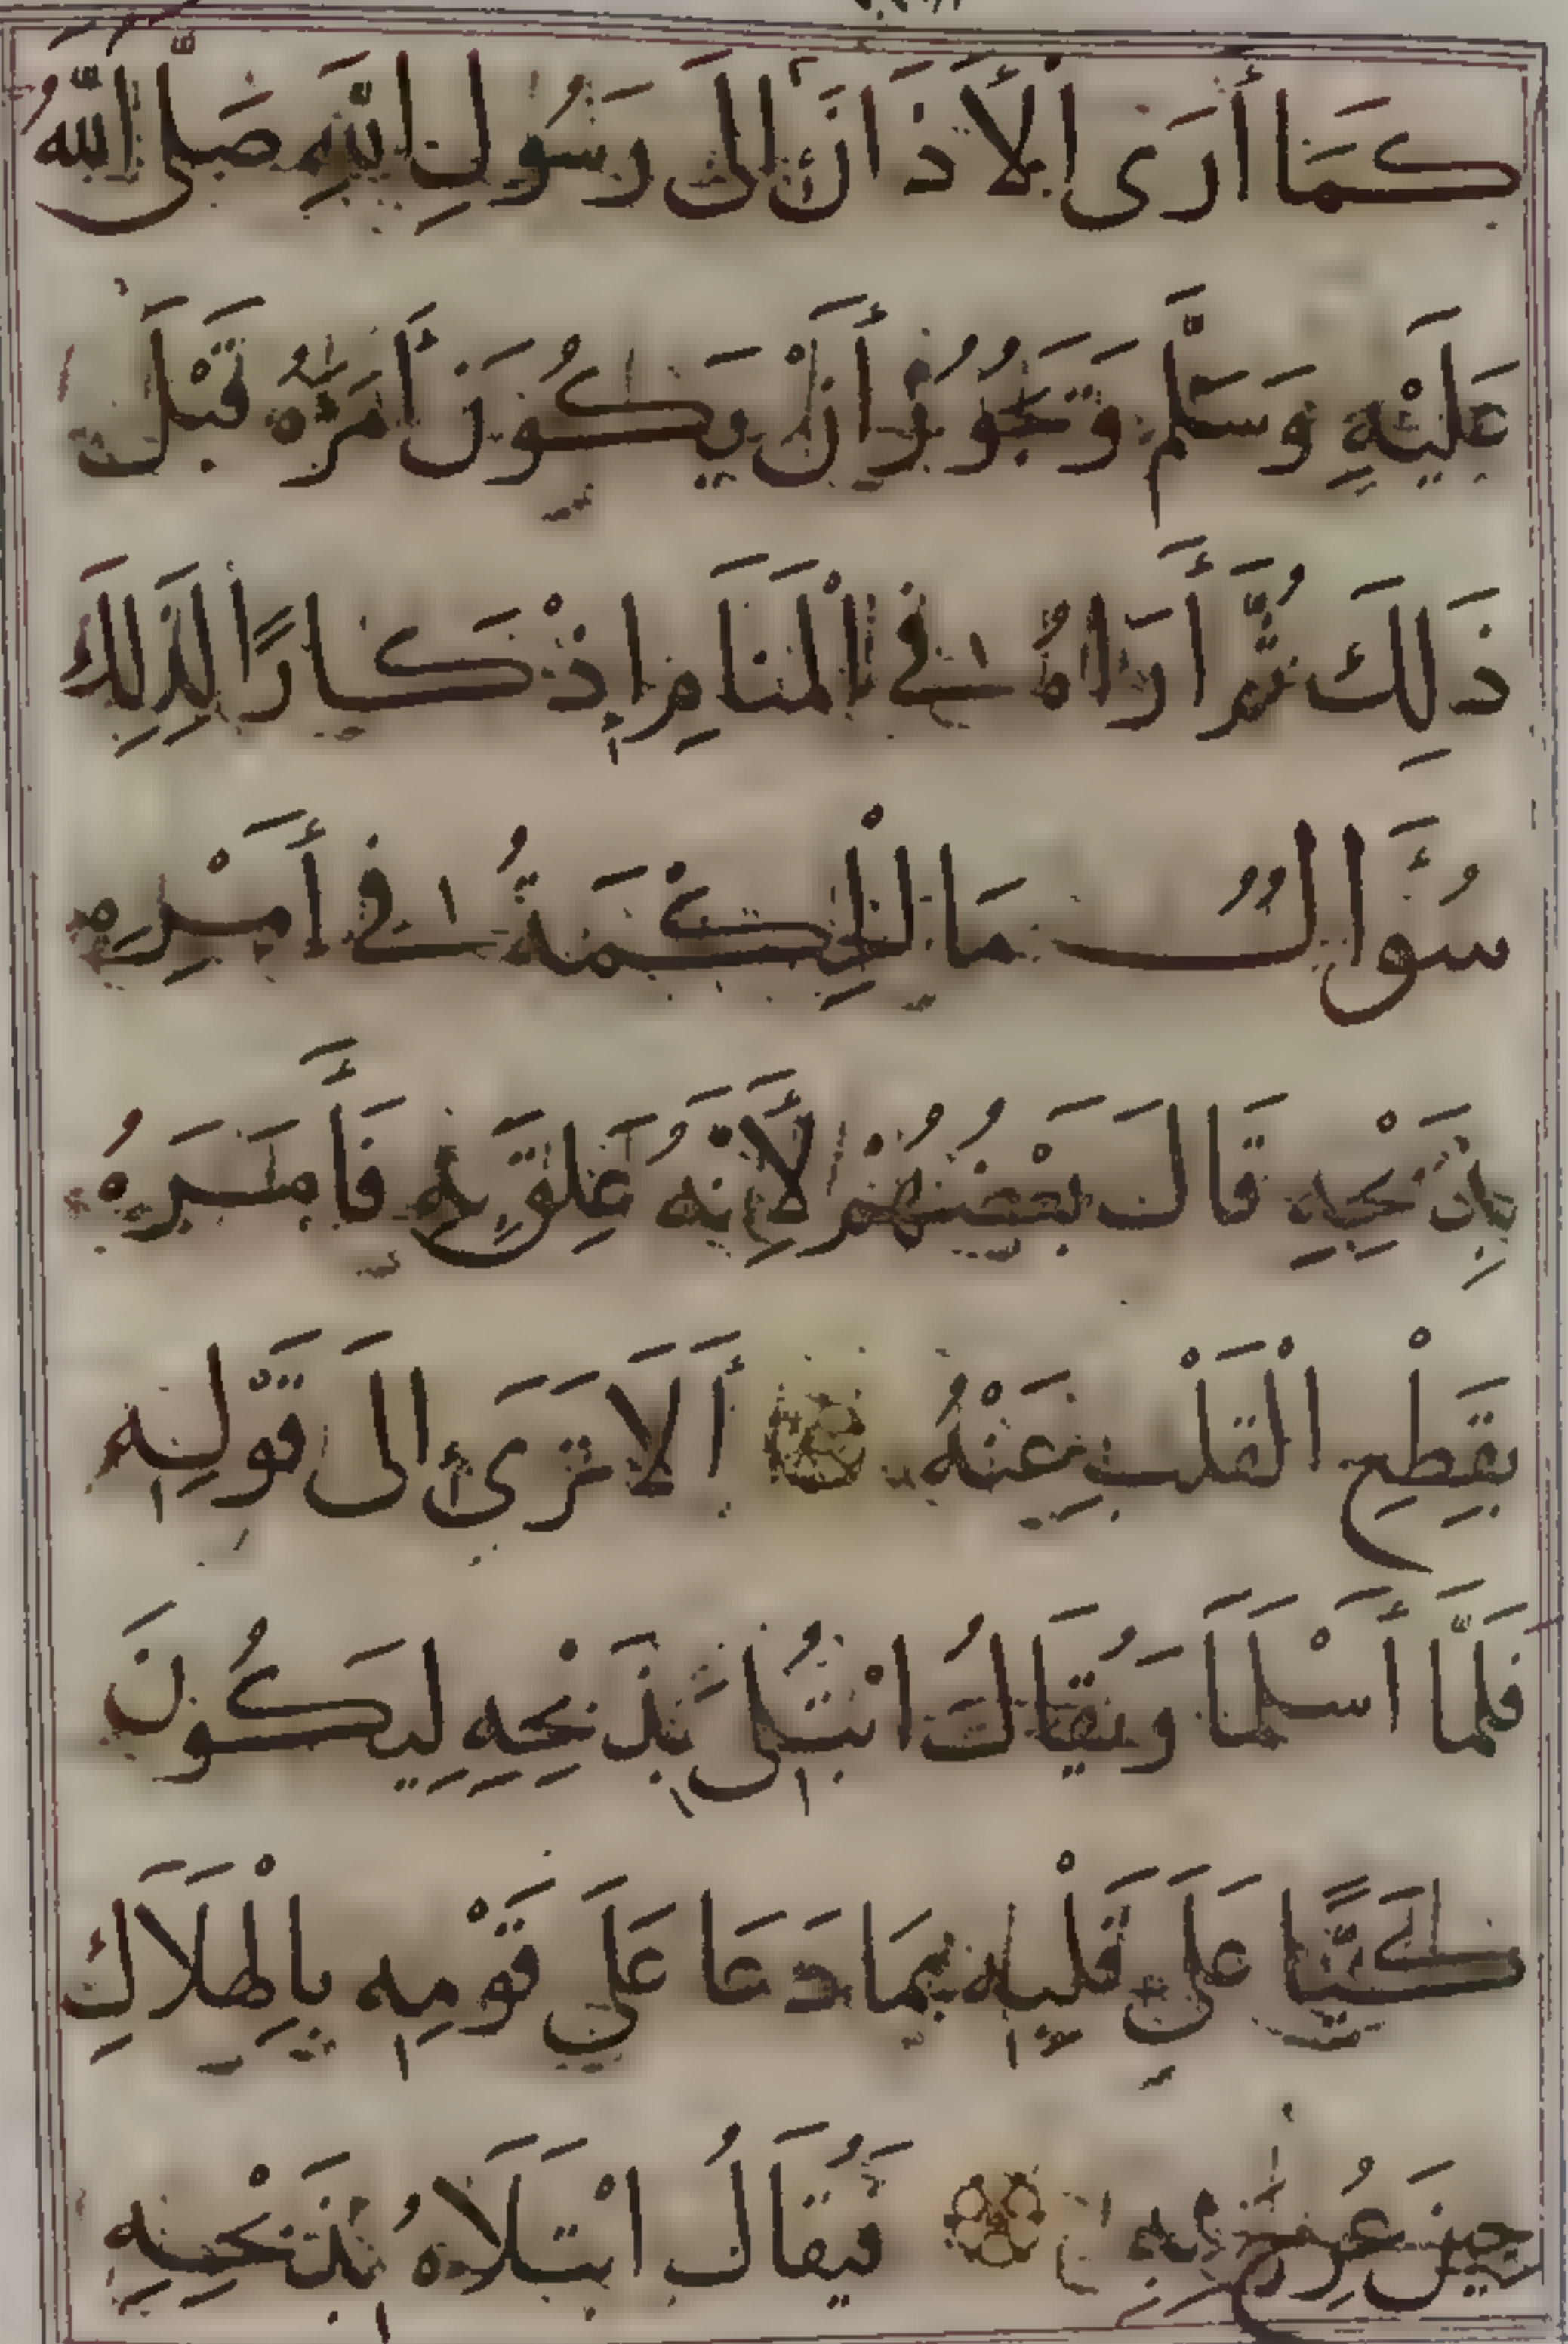 كَمَا أَرَى الْأَذَانَ إِلَى رَسُولِ اللَّهِ صَلَّى اللَّهُ
عَلَيْهِ وَسَلَّمَ وَيَجُوزُ أَنْ يَكُونَ أَمَرَهُ قَبْلَ
ذَلِكَ ثُمَّ أَرَاهُ فِي الْمَنَامِ إِذْكَارًا لِذَلِكَ
سُؤَالٌ مَا الْحِكْمَةُ فِي أَمْرِهِ
بِذَبْحِهِ قَالَ بَعْضُهُمْ لِأَنَّهُ عَلِقَ بِهِ فَأَمَرَهُ
بِقَطْعِ الْقَلْبِ عَنْهُ أَلَا تَرَى إِلَى قَوْلِهِ
فَلَمَّا أَسْلَمَا وَيُقَالُ ابْتُلِيَ بِذَبْحِهِ لِيَكُونَ
كَيًّا عَلَى قَلْبِهِ بِمَا دَعَا عَلَى قَوْمِهِ بِالْهَلَاكِ
حِينَ عُرِجَ بِهِ فَيُقَالُ ابْتَلَاهُ بِذَبْحِهِ